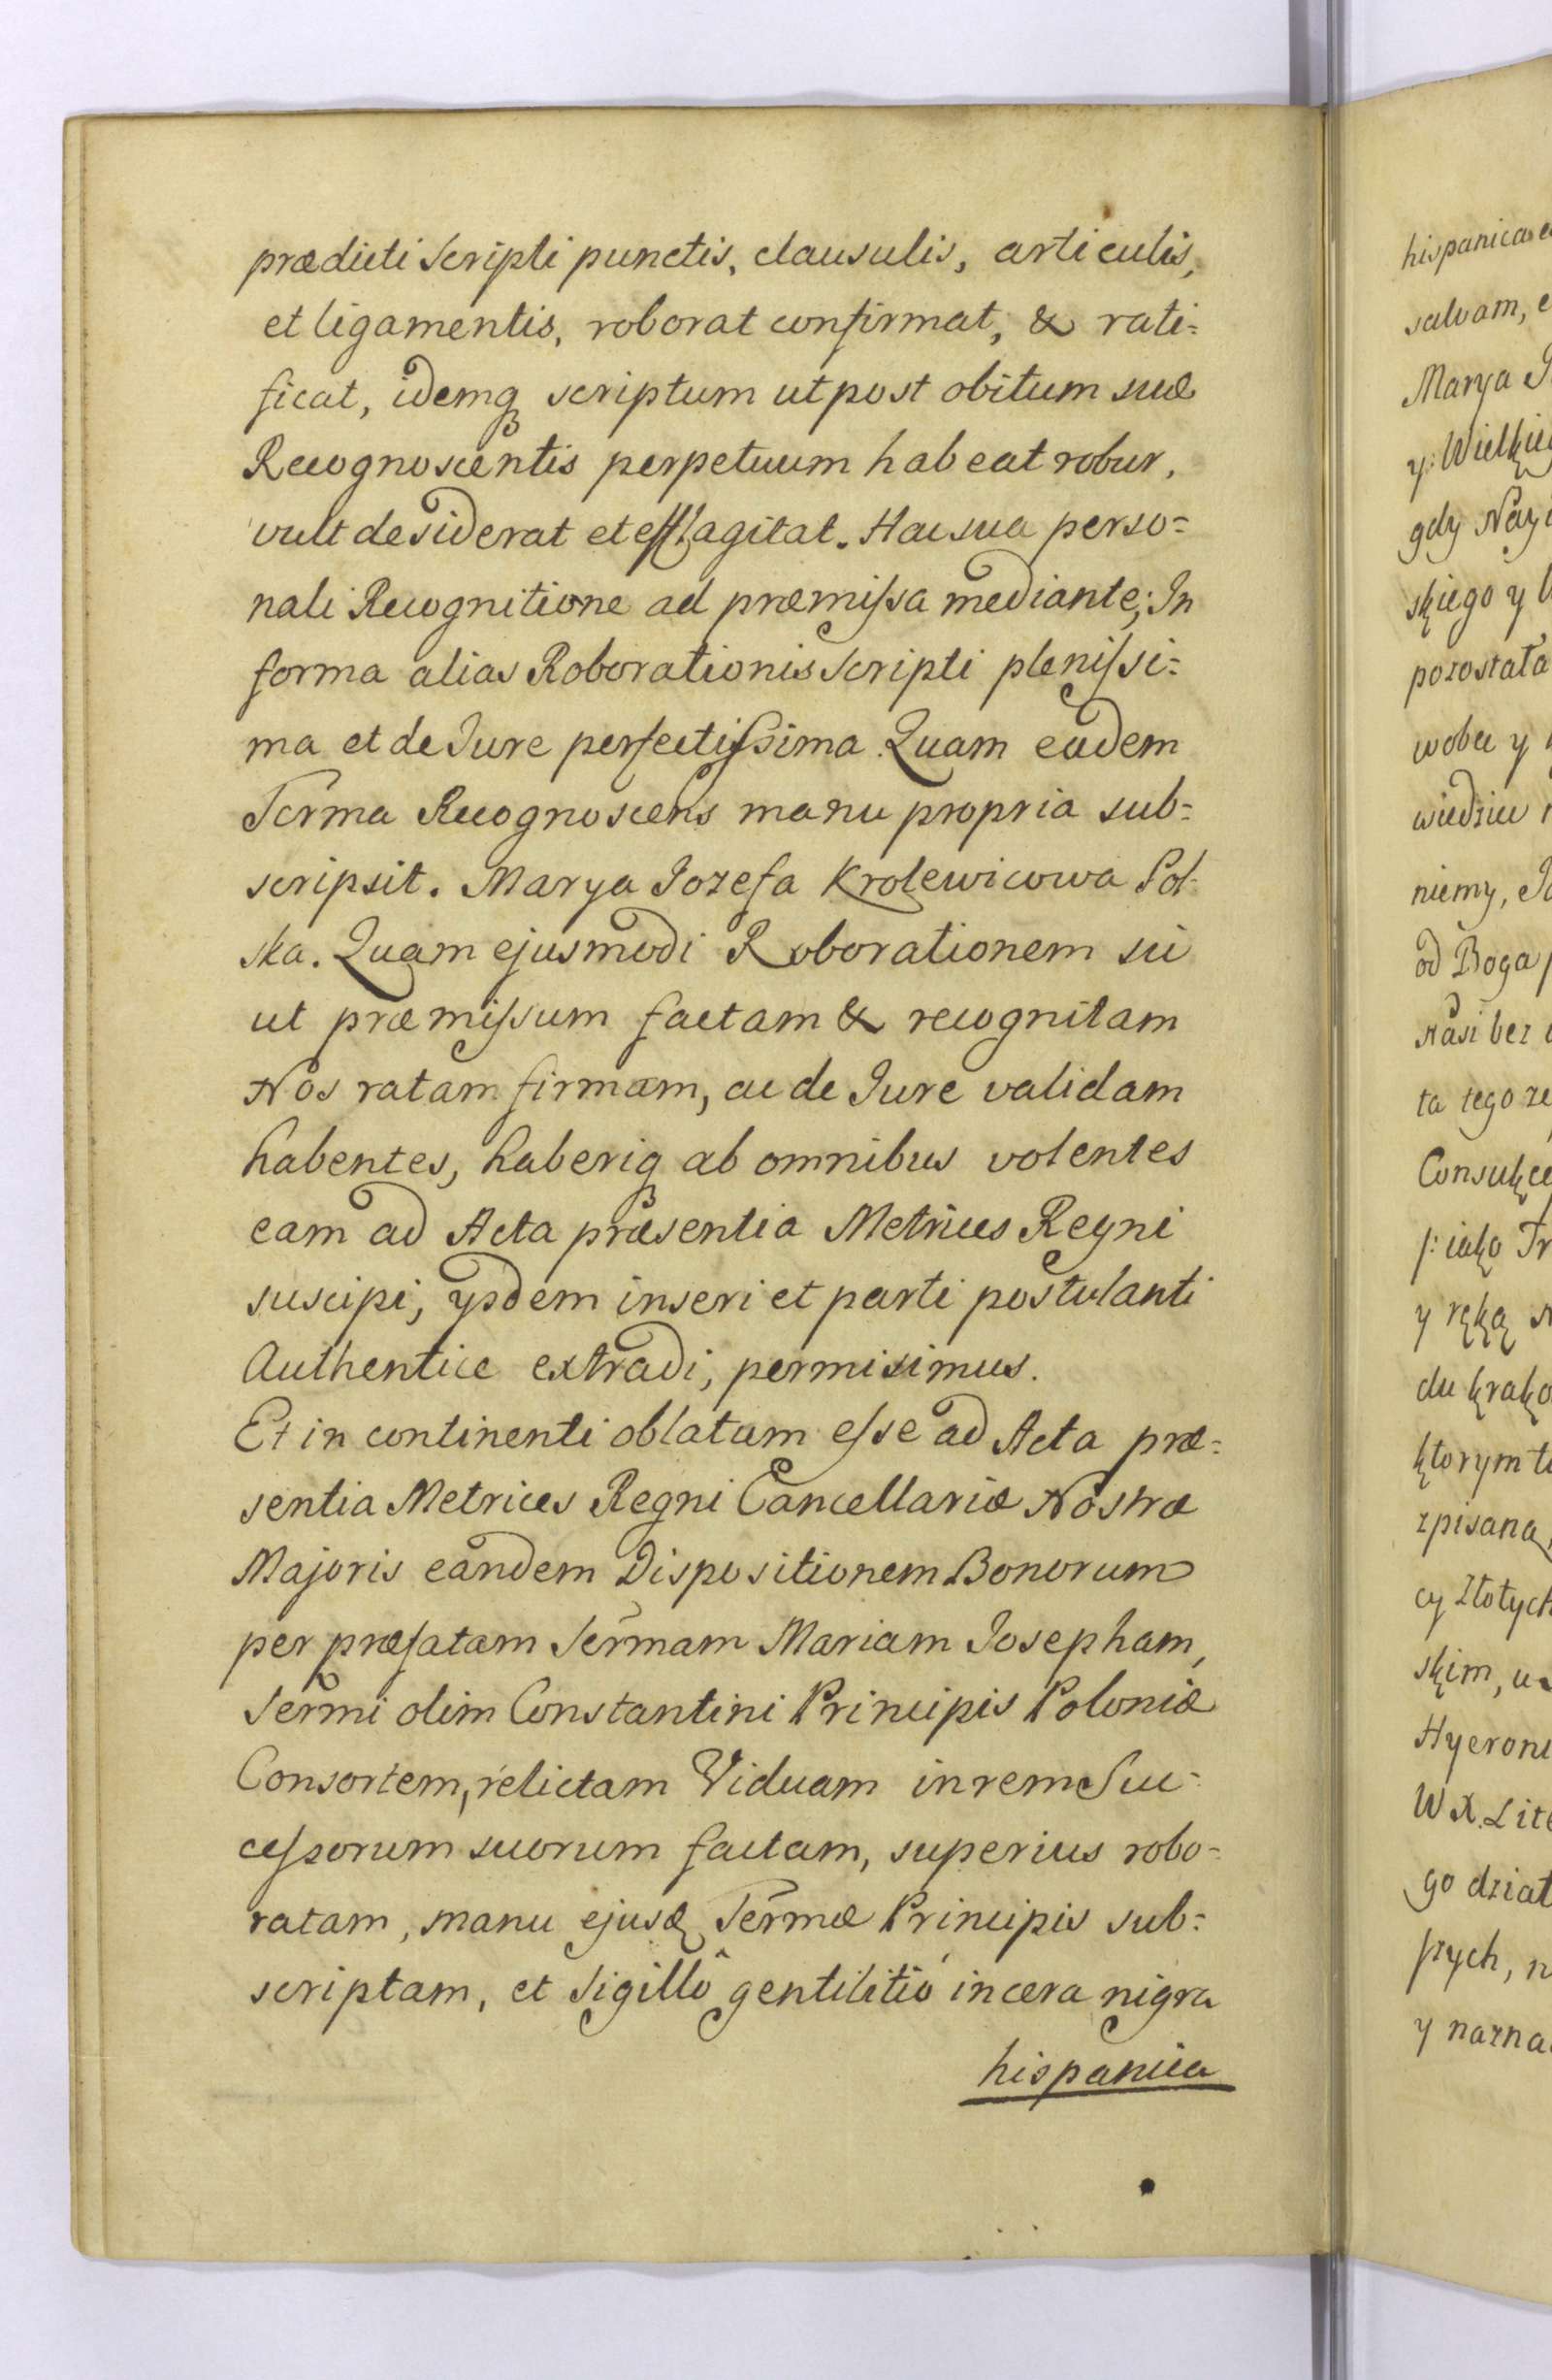 prædicti Scripti punctis, clausulis, articulis,
et ligamentis, roborat confirmat, & rati=
ficat, idemq scriptum ut post obitum suæ
Recognoscentis perpetuum habeat robur,
vult desiderat et efflagitat. Hac sua perso=
nali Recognitione ad præmissa mediante; In
forma alias Roborationis Scripti plenissi=
ma et de Jure perfectissima. Quam eadem
Serma Recognoscens manu propria sub=
scripsit. Marya Jozefa Krolewicowa Pol-
ska. Quam ejusmodi Roborationem sic
ut præmissum factam & recognitam
Nos ratam firmam, ac de Jure validam
habentes, haberiq ab omnibus volentes
eam ad Acta præsentia Metrices Regni
suscipi, ysdem inseri et parti postulanti
Authentice extradi, permisimus.
Et in continenti oblatam esse ad Acta præ=
sentia Metrices Regni Cancellariæ Nostræ
Majoris eandem Dispositionem Bonorum
per præfatam Sermam Mariam Josepham,
Sermi olim Constantini Principis Poloniæ
Consortem, relictam Viduam in rem Suc=
cessorum suorum factam, superius robo=
ratam, manu ejusq Sermæ Principis sub=
scriptam, et Sigillô gentilitió in cera nigra
hispanica
hispanica
salvam,
Marya
y: Wielkie
gdy Nayi
skiego y
pozostała
wobec y
wiedziec
niemy,
od Boga
Nasi bez
ta tego
Consulce
/: iako
y ręką
du krako
ktorym
zpisana
cy Złotych
skim,
Hyeroni
W X. Lit
go dział
szych,
y nazna